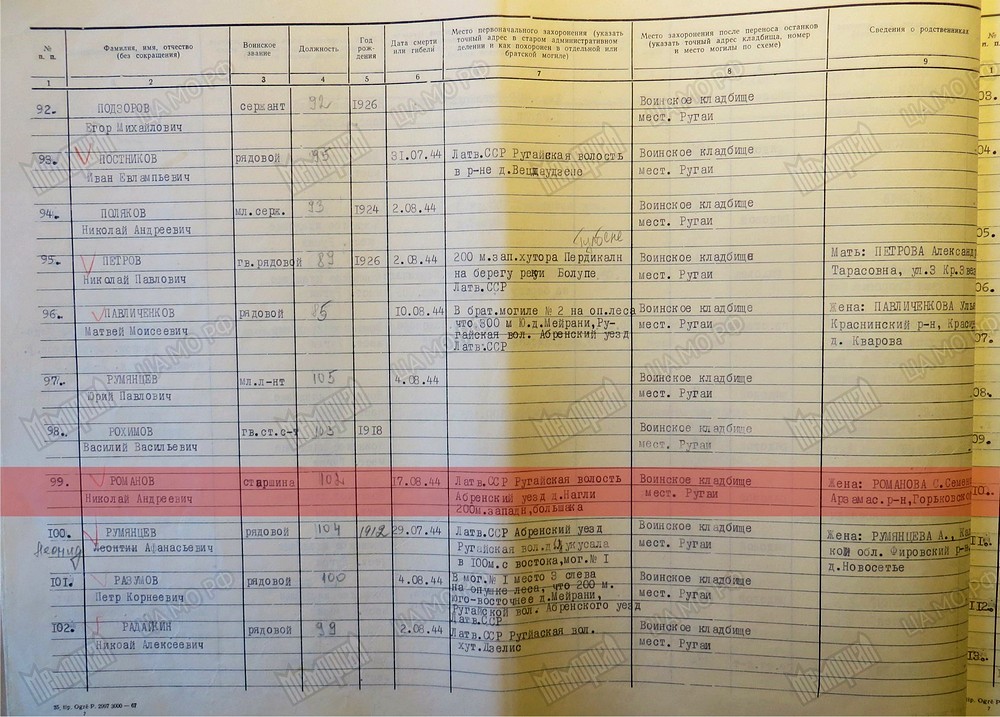 № п. п. Фамилия, имя, отчество (без сокращения) Воинское звание Должность Год рож- дения Дата смерти или гибели Место первоначального захоронения (указать точный адрес в старом административном делении и как похоронен в отдельной или братской могиле) Место захоронения после переноса останков (указать точный адрес кладбища, номер и место могилы по схеме) Сведения о родственниках № п.
1 2 3 4 5 6 7 8 9 1
92. ПОДЗОРОВ сержант 92 1926 Воинское кладбище
Егор Михайлович мест. Ругаи
93. ПОСТНИКОВ рядовой 95 31.07.44 Латв.ССР Ругайская волость Воинское кладбище
Иван Евлампьевич в р-не д.Вецдаудзене мест. Ругаи
94. ПОЛЯКОВ мл.серж. 93 1924 2.08.44 Воинское кладбище
Николай Андреевич мест. Ругаи
95. ПЕТРОВ гв.рядовой 89 1926 2.08.44 200 м.зап.хутора Пердикалн Воинское кладбище Мать: ПЕТРОВА Александ
Николай Павлович на берегу реки Болупе мест. Ругаи Тарасовна, ул.3 Кр.Звез
Латв.ССР
96. ПАВЛИЧЕНКОВ рядовой 85 10.08.44 В брат.могиле № 2 на оп.леса Воинское кладбище Жена: ПАВЛИЧЕНКОВА Улья
Матвей Моисеевич что 800 м Ю.д.Мейрани,Ру- мест. Ругаи Краснинский р-н, Красн
гайская вол. Абренский уезд д. Кварова
Латв.ССР
97. РУМЯНЦЕВ мл.л-нт 105 4.08.44 Воинское кладбище
Юрий Павлович мест. Ругаи
98. РОХИМОВ гв.ст.с-т 103 1918 Воинское кладбище
Василий Васильевич мест. Ругаи
99. РОМАНОВ старшина 102 17.08.44 Латв.ССР Ругайская волость Воинское кладбище Жена: РОМАНОВА С.Семен
Николай Андреевич Абренский уезд д.Нагли мест. Ругаи Арзамас.р-н,Горьковско
200м.западн,большака
100. РУМЯНЦЕВ рядовой 104 1912 29.07.44 Латв.ССР Абренский уезд Воинское кладбище Жена: РУМЯНЦЕВА А.,
Леонид Леонтий Афанасьевич Ругайская вол.д.Цукусала мест. Ругаи кой обл. Фировский р-н
в 100м.с востока,мог.№ I д.Новосетье
101. РАЗУМОВ рядовой 100 4.08.44 В мог.№ I место 3 слева Воинское кладбище
Петр Корнеевич на опушке леса, что 200 м. мест. Ругаи
юго-восточнее д.Мейрани,
Ругайской вол. Абренского уезд
Латв.ССР
102. РАДАЙКИН рядовой 99 2.08.44 Латв.ССР Ругйаская вол. Воинское кладбище
Никоай Алексеевич хут.Дзелис мест. Ругаи
55. tip. Ogrē P. 2997 3000 — 67
Мемориал ЦАМО РФ